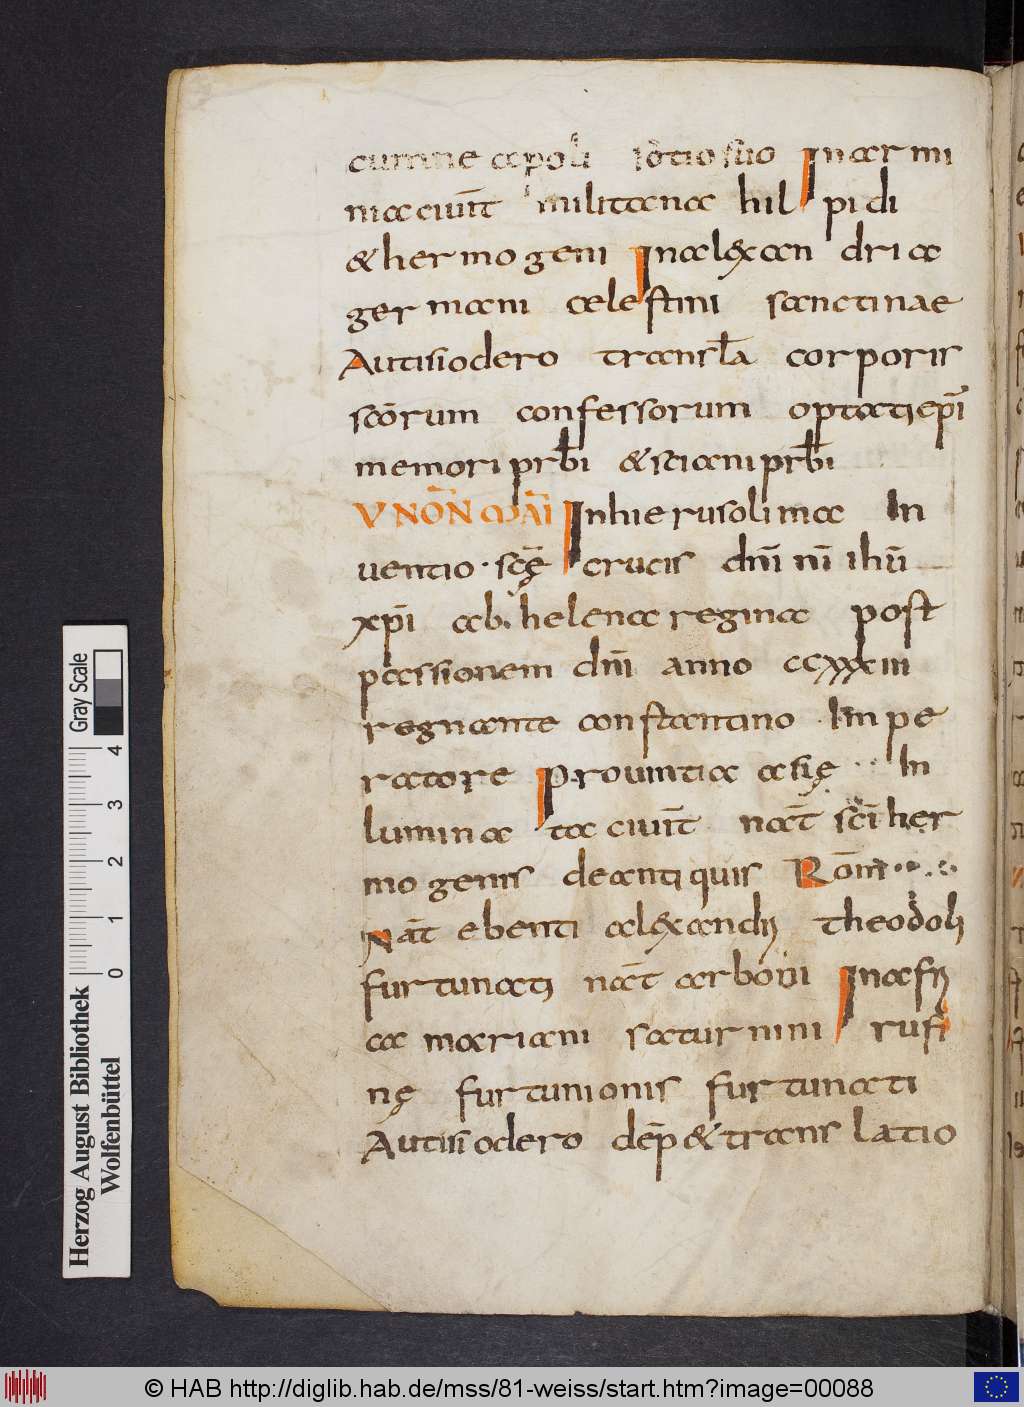 cumne apoli iōtio suo In armi
nia ciuit̄ militana hil pidi
& hermogeni In alexan dria
germani celestini sanctinae
Autisiodero transl̄a corporis
scōrum confessorum optati ep̄i
memori prb̄i & sciani prb̄i
V NŌN MĀI In hierusolima In
uentio · scę̄ crucis dnī nī ihū
xp̄i ab helena regina post
passionem dnī anno ccxxxiii
regnante constantino Impe
ratore Prouintia asię In
lumina ta ciuit̄ nat̄ scī her
mogenis de antiquis Rōm
Nāt ebenti alexandrj theodolj
furtunatj nāt arboni In afrj
ca mariani saturnini rufi
nę furtunionis furtunati
Autisiodero dep̄ & translatio
Gray Scale
4
3
2
1
0
Herzog August Bibliothek
Wolfenbüttel
© HAB http://diglib.hab.de/mss/81-weiss/start.htm?image=00088